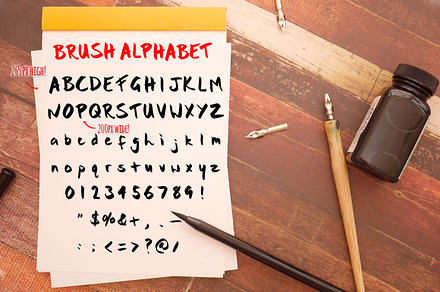 BRUSH ALPHABET
295 PX HIGH!
ABCDEFGHIJKLM
NOPQRSTUVWXYZ
200PX WIDE!
abcdefghijklm
nopqrstuvwxyz
0123456789!
"$%&+,.-
:;<=>?@/